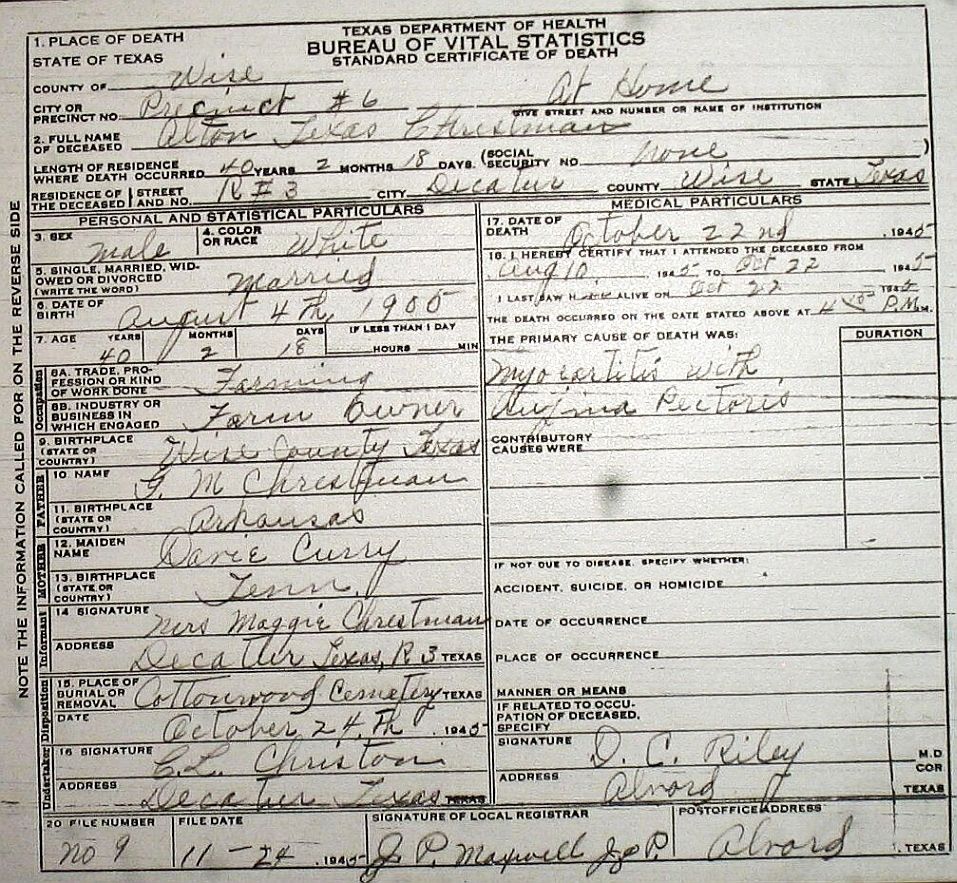 TEXAS DEPARTMENT OF HEALTH
BUREAU OF VITAL STATISTICS
STANDARD CERTIFICATE OF DEATH
1. PLACE OF DEATH
STATE OF TEXAS
COUNTY OF Wise
CITY OR PRECINCT NO. Precinct #6 At Home
GIVE STREET AND NUMBER OR NAME OF INSTITUTION
2. FULL NAME OF DECEASED Alton Texas Christman
LENGTH OF RESIDENCE WHERE DEATH OCCURRED 40 YEARS 2 MONTHS 18 DAYS. (SOCIAL SECURITY NO. None )
RESIDENCE OF THE DECEASED STREET AND NO. R #3 CITY Decatur COUNTY Wise STATE Texas
NOTE THE INFORMATION CALLED FOR ON THE REVERSE SIDE
PERSONAL AND STATISTICAL PARTICULARS
3. SEX male 4. COLOR OR RACE White
5. SINGLE, MARRIED, WIDOWED OR DIVORCED (WRITE THE WORD) Married
6. DATE OF BIRTH August 4th, 1905
7. AGE YEARS MONTHS DAYS IF LESS THAN 1 DAY
40 2 18 HOURS MIN
Occupation
8A. TRADE, PROFESSION OR KIND OF WORK DONE Farming
8B. INDUSTRY OR BUSINESS IN WHICH ENGAGED Farm Owner
9. BIRTHPLACE (STATE OR COUNTRY) Wise County Texas
FATHER
10 NAME G. M Christman
11. BIRTHPLACE (STATE OR COUNTRY) Arkansas
MOTHER
12. MAIDEN NAME Davie Curry
13. BIRTHPLACE (STATE OR COUNTRY) Tenn.
Informant
14 SIGNATURE Mrs Maggie Christman
ADDRESS Decatur Texas, R 3 TEXAS
Disposition
15. PLACE OF BURIAL OR REMOVAL Cottonwood Cemetery TEXAS
DATE October 24.th 1945
Undertaker
16 SIGNATURE C.L. Christian
ADDRESS Decatur Texas TEXAS
MEDICAL PARTICULARS
17. DATE OF DEATH October 22nd, 1945
18. I HEREBY CERTIFY THAT I ATTENDED THE DECEASED FROM
Aug 10 1945 TO Oct 22 1945
I LAST SAW H im ALIVE ON Oct 22 1945
THE DEATH OCCURRED ON THE DATE STATED ABOVE AT 4 P.M. M.
THE PRIMARY CAUSE OF DEATH WAS: DURATION
Myocartitis with
Anjina Pectoris
CONTRIBUTORY CAUSES WERE
IF NOT DUE TO DISEASE, SPECIFY WHETHER:
ACCIDENT, SUICIDE, OR HOMICIDE
DATE OF OCCURRENCE
PLACE OF OCCURRENCE
MANNER OR MEANS
IF RELATED TO OCCUPATION OF DECEASED, SPECIFY
SIGNATURE D. C. Riley M.D COR
ADDRESS Alvord TEXAS
20 FILE NUMBER FILE DATE SIGNATURE OF LOCAL REGISTRAR POSTOFFICE ADDRESS
No 9 11-24 1945 J P. Maxwell Alvord TEXAS